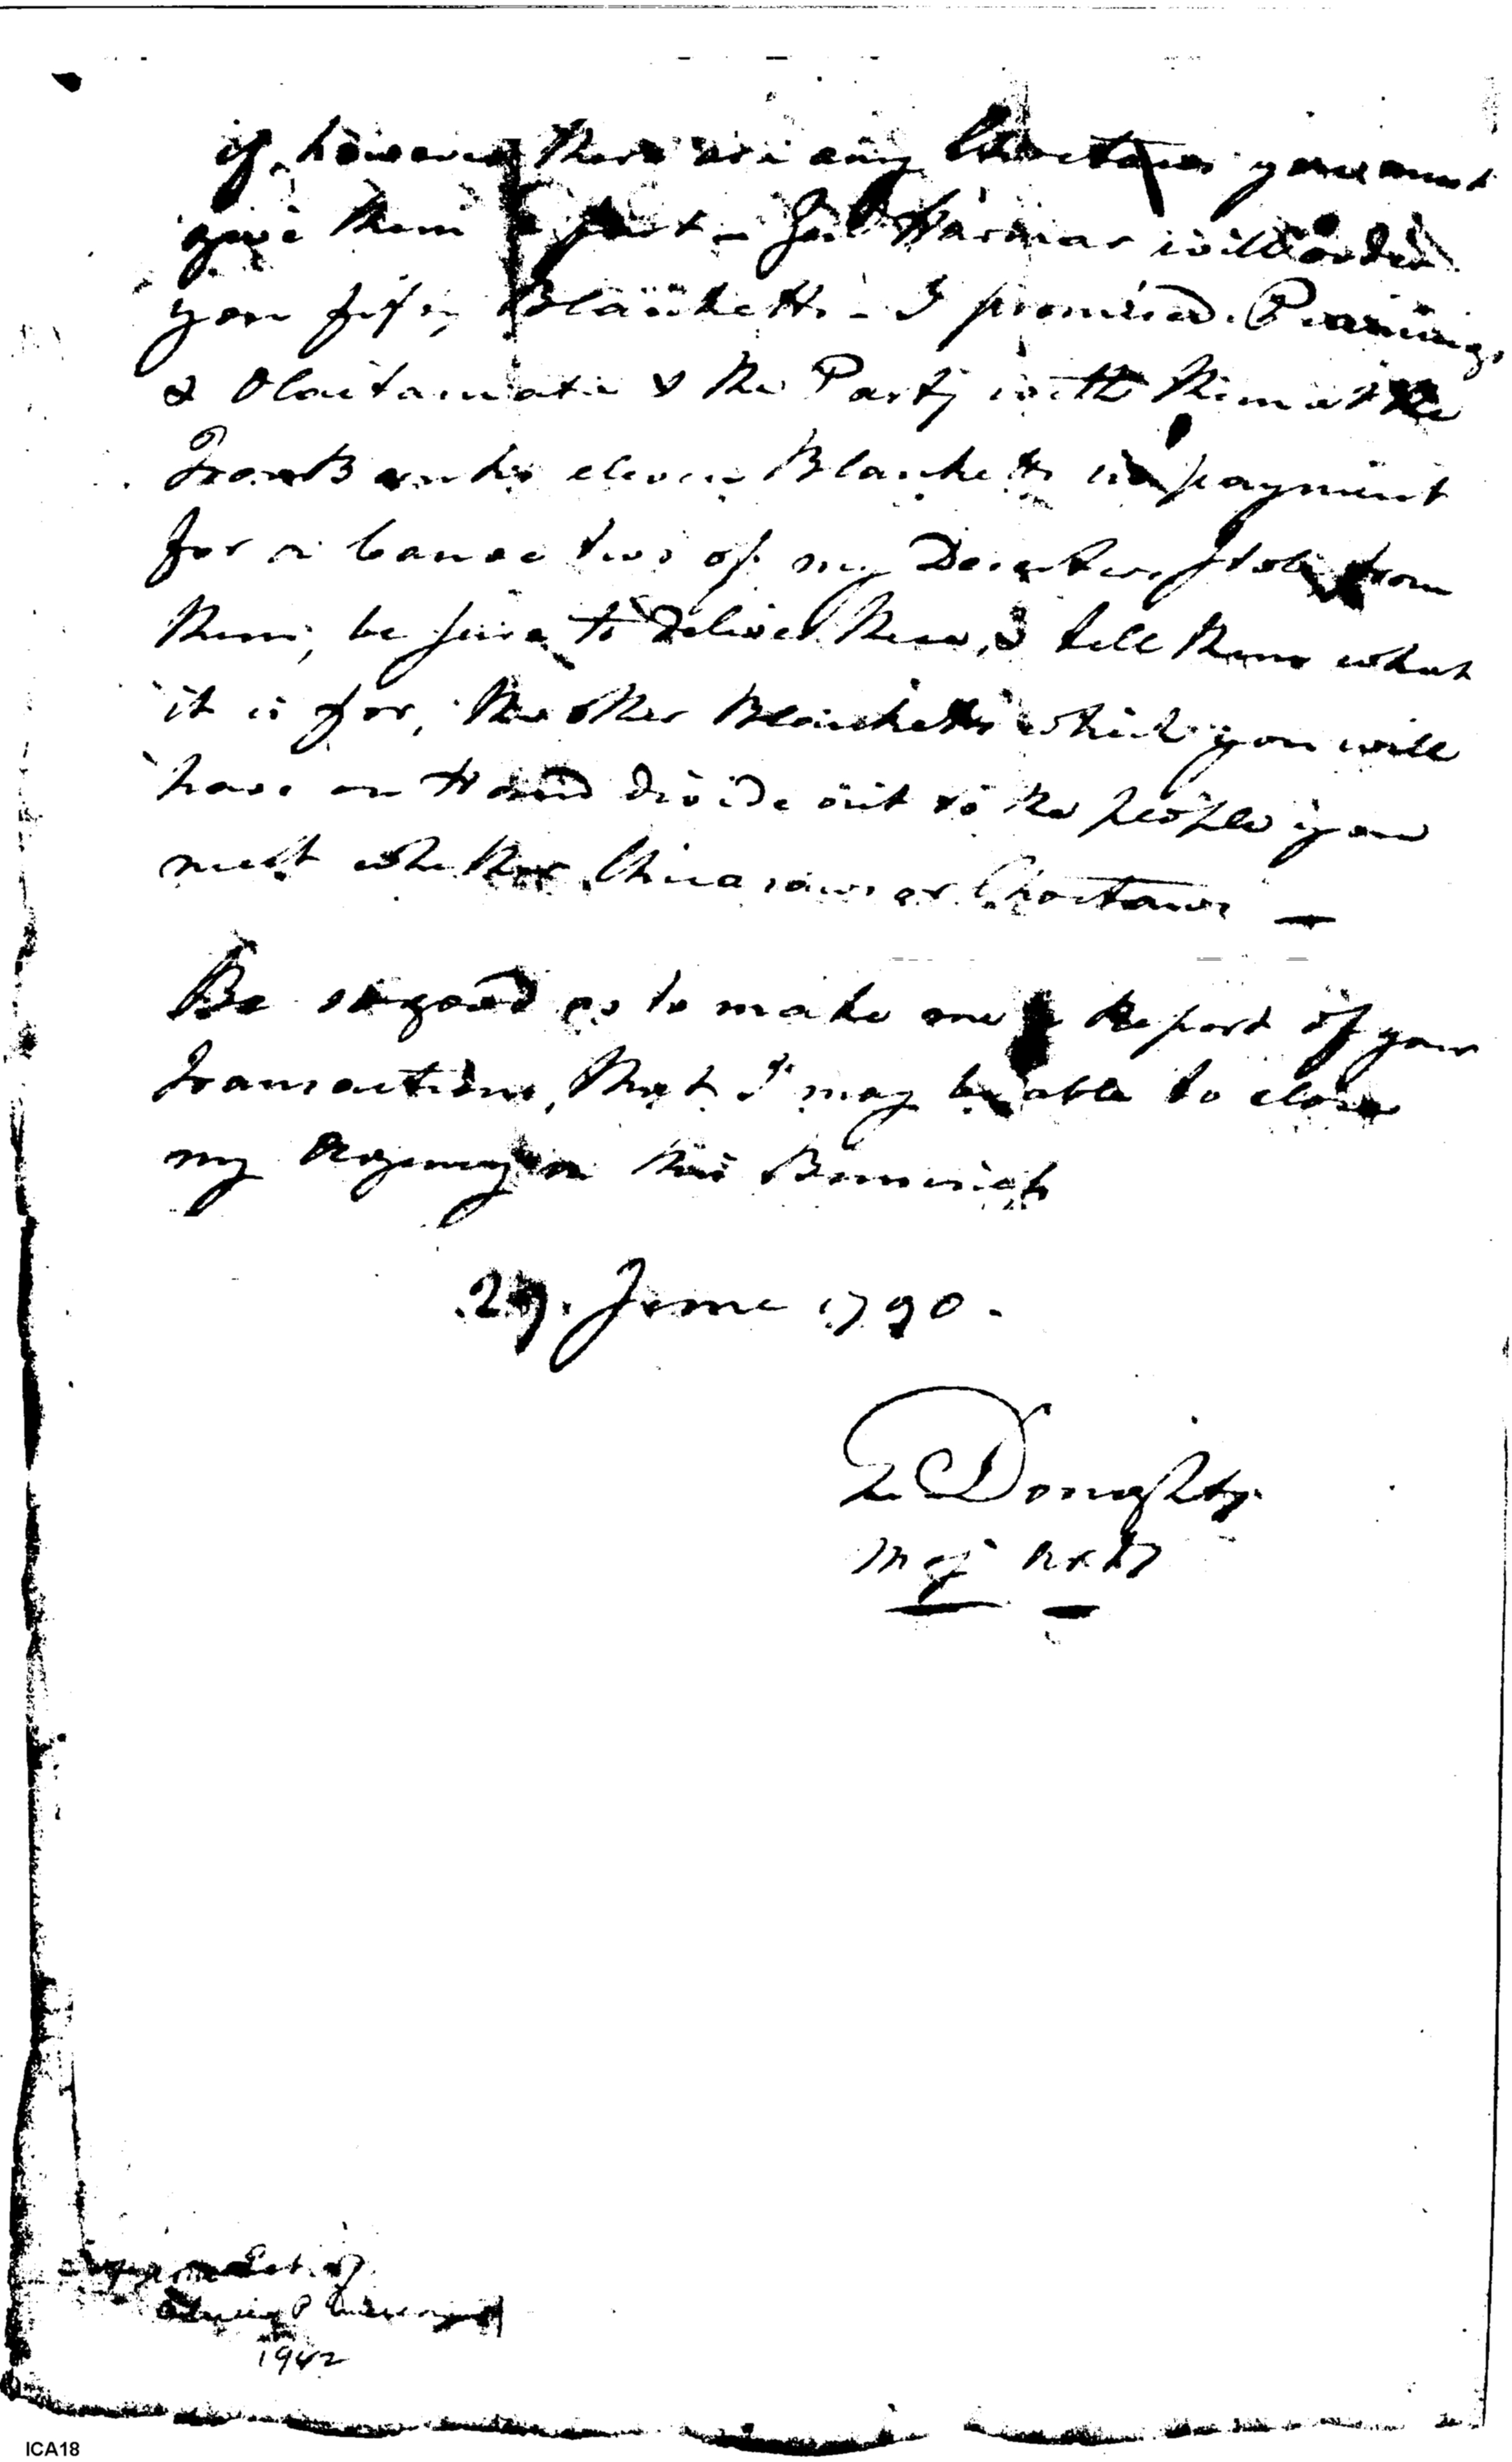 if however there are any Choctaws you must
give them a part – Genl Harmar will order
you fifty Blanketts – I promised
& the Party with them at the
Iron Banks eleven Blanketts in payment
for a Canoe two of my Deserters stole from
them, be sure to deliver these, & tell them what
it is for, the other Blanketts which you will
have on Hand divide out to the people you
meet whether Chicasaws or Choctaws —
Be so good as to make me a Report of your
Transactions, that I may be able to close
my Agency on this Business
29. June 1790.
Doughty
Maj
1942
ICA18